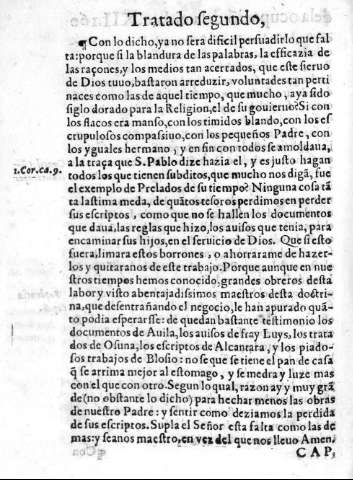 Tratado segundo,
¶Con lo dicho, ya no sera dificil persuadirlo que fal
ta: porque si la blandura de las palabras, la efficazia de
las raçones, y los medios tan acertados, que este sieruo
de Dios tuuo, bastaron arreduzir, voluntades tan perti
naces como las de aquel tiempo, que mucho, aya sido
siglo dorado para la Religion, el de su gouierno? Si con
los flacos era manso, con los timidos blando, con los es
crupulosos compasiuo, con los pequeños Padre, con
los yguales hermano, y en fin con todos se amoldaua,
a la traça que S. Pablo dize hazia el, y es justo hagan
1.Cor.ca.9.
todos los que tienen subditos, que mucho nos digã, fue
el exemplo de Prelados de su tiempo? Ninguna cosa tã
ta lastima me da, de quãtos tesoros perdimos en perder
sus escriptos, como que no se hallen los documentos
que daua, las reglas que hizo, los auisos que tenia, para
encaminar sus hijos, en el seruicio de Dios. Que si esto
fuera, limara estos borrones, o ahorrarame de hazer-
los y quitaranos de este trabajo. Porque aunque en nue
stros tiempos hemos conocido, grandes obreros desta
labor y visto abentajadissimos maestros desta doctri-
na, que desentrañando el negocio, le han apurado quã-
to podia esperarsse: de quedan bastante testimonio los
documentos de Auila, los auisos de fray Luys, los trata
dos de Osuna, los escriptos de Alcantara, y los piado-
sos trabajos de Blosio: no se que se tiene el pan de casa
q̃ se arrima mejor al estomago, y se medra y luze mas
con el que con otro. Segun lo qual, razon ay y muy grã
de (no obstante lo dicho) para hechar menos las obras
de nuestro Padre: y sentir como deziamos la perdida
de sus escriptos. Supla el Señor esta falta como las de
mas: y seanos maestro, en vez del que nos lleuo Amen.
CAP,